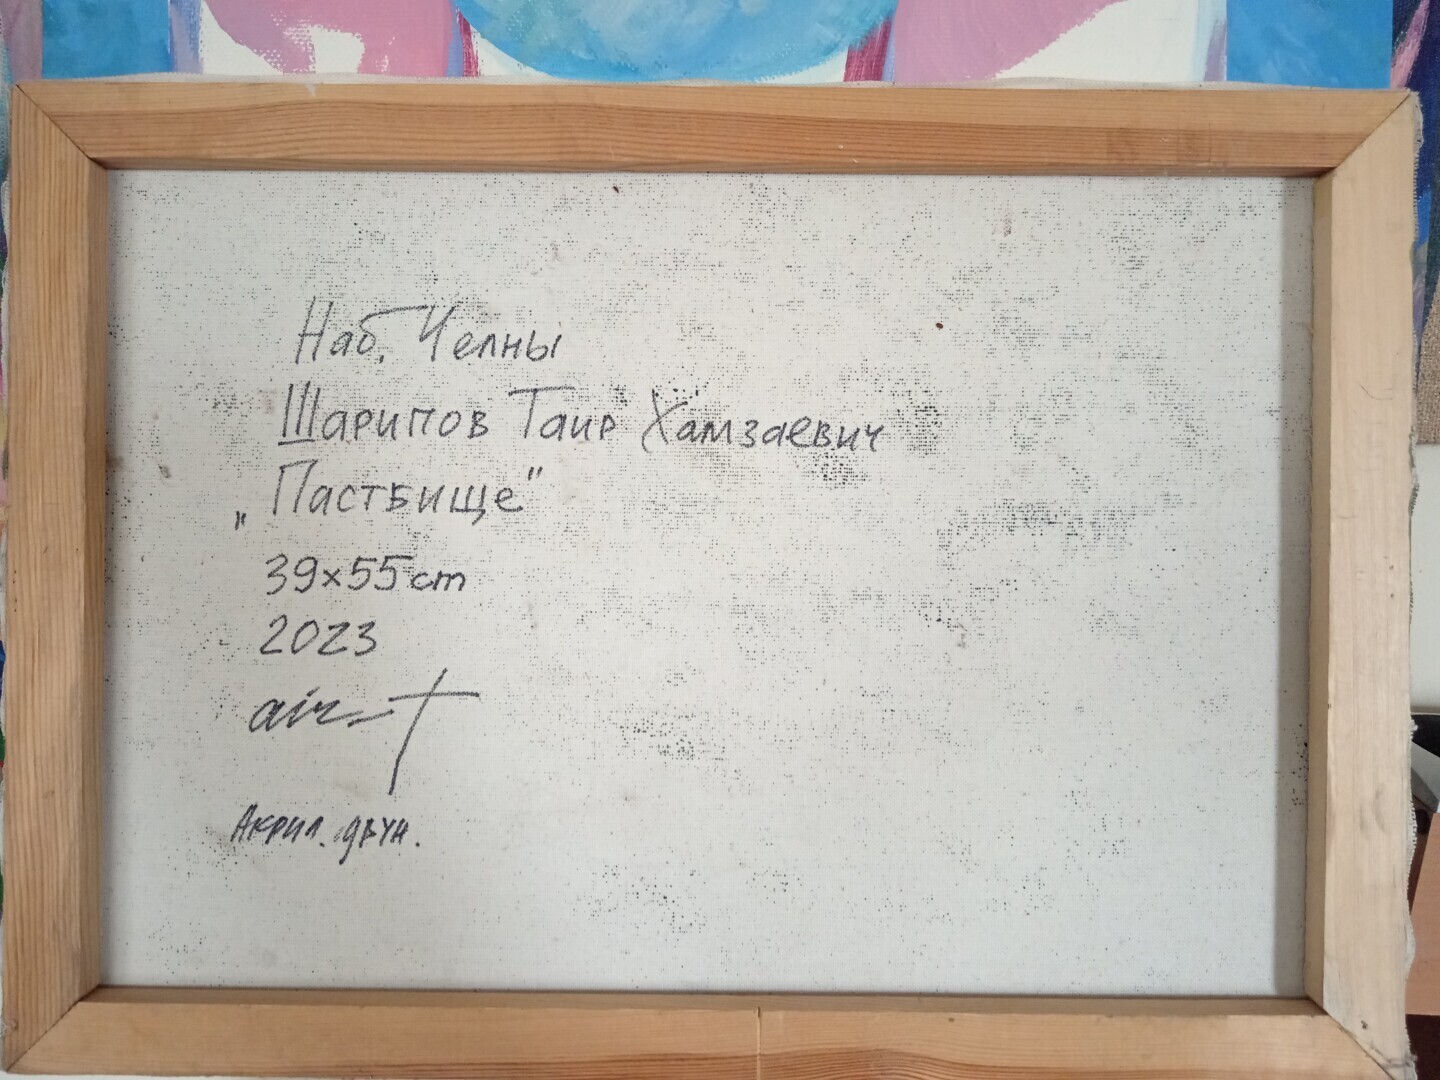 Наб. Челны
Шарипов Таир Хамзаевич
„Пастбище"
39x55cm
2023
air-T
Акрил. двун.